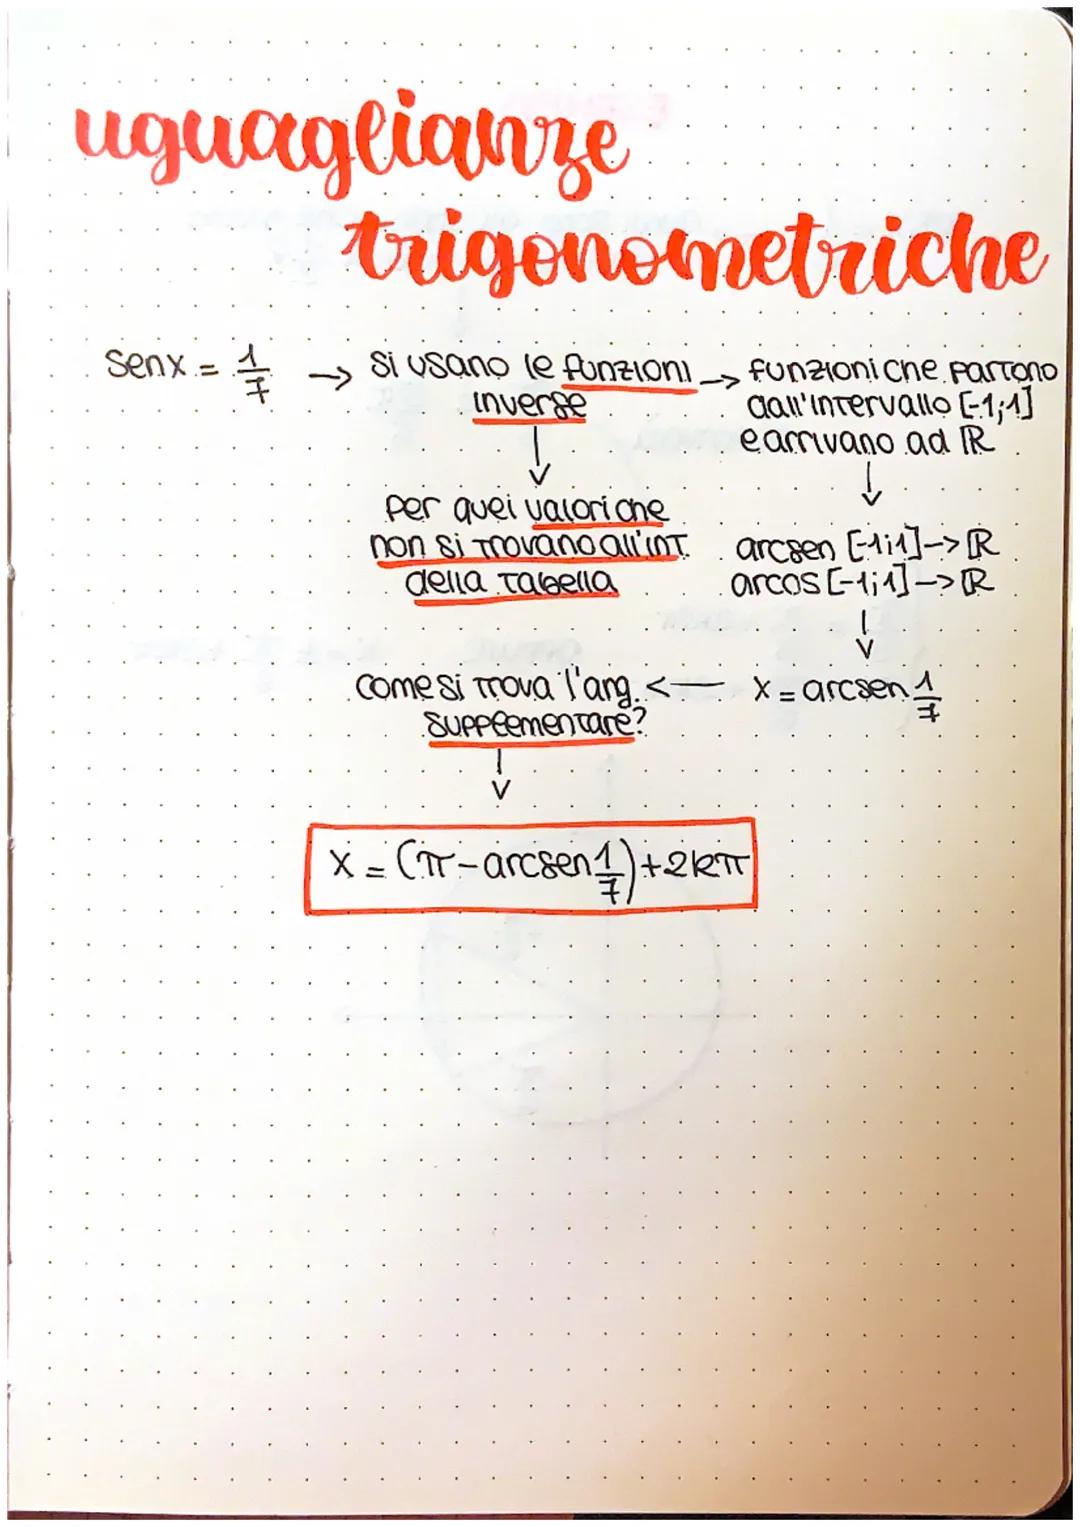 uguaglianze
trigonometriche
senx = 1/7 → si usano le funzioni → funzioni che partono
inverse
dall'intervallo [-1;1]
e arrivano ad ℝ
↓
↓
per quei valori che
non si trovano all'int.
della tabella
arcsen [-1;1]->ℝ
arcos [-1;1]->ℝ
↓
come si trova l'ang. <— x = arcsen 1/7
supplementare?
↓
x = (π - arcsen 1/7) + 2kπ